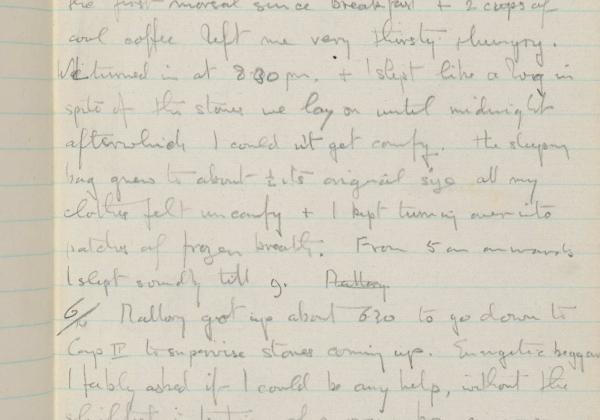 the first morsal since breakfast + 2 cups of
cool coffee left me very thirsty & hungry.
We turned in at 8.30 pm. + I slept like a log in
spite of the stones we lay on until midnight
afterwhich I couldn't get comfy. The sleeping
bag grew to about ½ its original size all my
clothes felt uncomfy + I kept turning over into
patches of frozen breath. From 5 am onwards
I slept soundly till 9. Mallory
6/ Mallory got up about 630 to go down to
Camp II to supervise stores coming up. Energetic beggar
I feebly asked if I could be any help, without the
slightest intention of